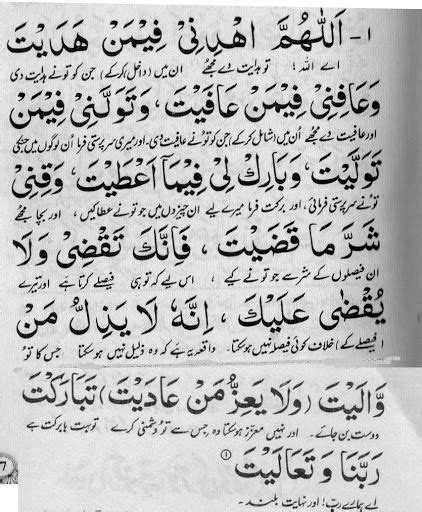 ۱- اَللّٰهُمَّ اهْدِنِیْ فِیْمَنْ هَدَیْتَ
اے اللہ! تو ہدایت دے مجھے ان میں (داخل کرکے) جن کو تو نے ہدایت دی
وَعَافِنِیْ فِیْمَنْ عَافَیْتَ، وَتَوَلَّنِیْ فِیْمَنْ
اور عافیت دے مجھے اُن میں (شامل کرکے) جن کو تو نے عافیت دی، اور میری سرپرستی فرما اُن لوگوں میں جن کی
تَوَلَّیْتَ، وَبَارِكْ لِیْ فِیْمَآ اَعْطَیْتَ، وَقِنِیْ
تو نے سرپرستی فرمائی، اور برکت فرما میرے لیے ان چیزوں میں جو تو نے عطا کیں، اور بچا مجھے
شَرَّ مَا قَضَیْتَ، فَاِنَّكَ تَقْضِیْ وَلَا
ان فیصلوں کے شر سے جو تو نے کیے، اس لیے کہ تو ہی فیصلے کرتا ہے اور تیرے
یُقْضٰی عَلَیْكَ، اِنَّهٗ لَا یَذِلُّ مَنْ
(فیصلے کے) خلاف کوئی فیصلہ نہیں ہوسکتا۔ واقعہ یہ ہے کہ وہ ذلیل نہیں ہوسکتا جس کا تو
وَّالَیْتَ (وَلَا یَعِزُّ مَنْ عَادَیْتَ) تَبَارَكْتَ
دوست بن جائے۔ اور نہیں معزز ہوسکتا وہ جس سے تو دشمنی کرے تو بہت بابرکت ہے
رَبَّنَا وَتَعَالَیْتَ ①
اے ہمارے رب! اور نہایت بلند۔